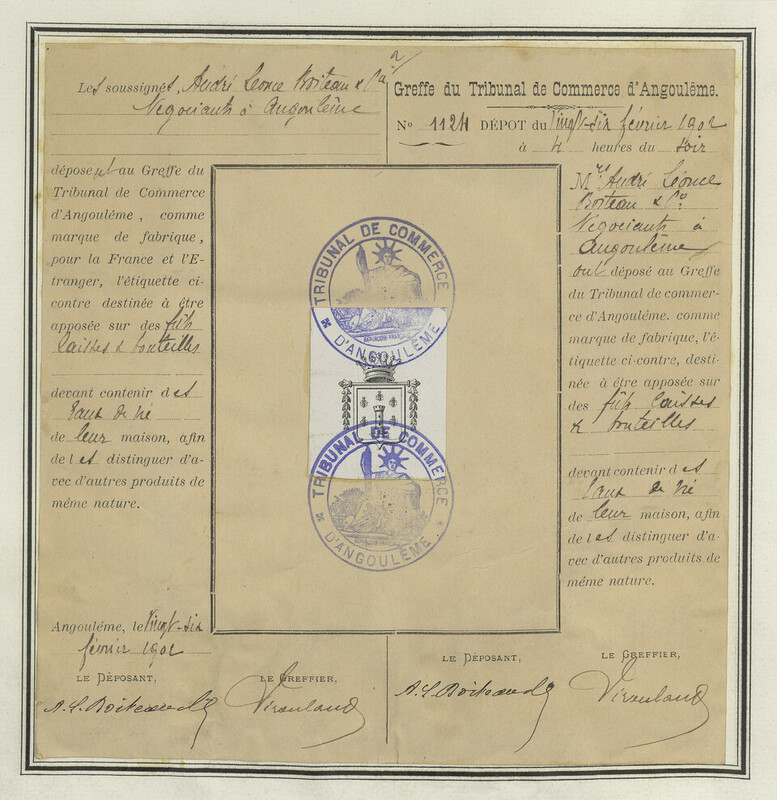 Les soussignés, André Léonce Boiteau & Cie
Négociants à Angoulême
déposent au Greffe du
Tribunal de Commerce
d'Angoulême, comme
marque de fabrique,
pour la France et l'E-
tranger, l'étiquette ci-
contre destinée à être
apposée sur des fûts
caisses & bouteilles
devant contenir des
eaux de vie
de leur maison, afin
de les distinguer d'a-
vec d'autres produits de
même nature.
Angoulême, le vingt-six
février 1902
LE DÉPOSANT,
LE GREFFIER,
A. L. Boiteau & Cie
TRIBUNAL DE COMMERCE
D'ANGOULÊME
TRIBUNAL DE COMMERCE
D'ANGOULÊME
Greffe du Tribunal de Commerce d'Angoulême.
No 1124 DÉPOT du vingt-six février 1902
à 4 heures du soir
Mrs André Léonce
Boiteau & Cie
Négociants à
Angoulême
ont déposé au Greffe
du Tribunal de commer-
ce d'Angoulême. comme
marque de fabrique, l'é-
tiquette ci-contre, desti-
née à être apposée sur
des fûts caisses
& bouteilles
devant contenir des
eaux de vie
de leur maison, afin
de les distinguer d'a-
vec d'autres produits de
même nature.
LE DÉPOSANT,
LE GREFFIER,
A. L. Boiteau & Cie